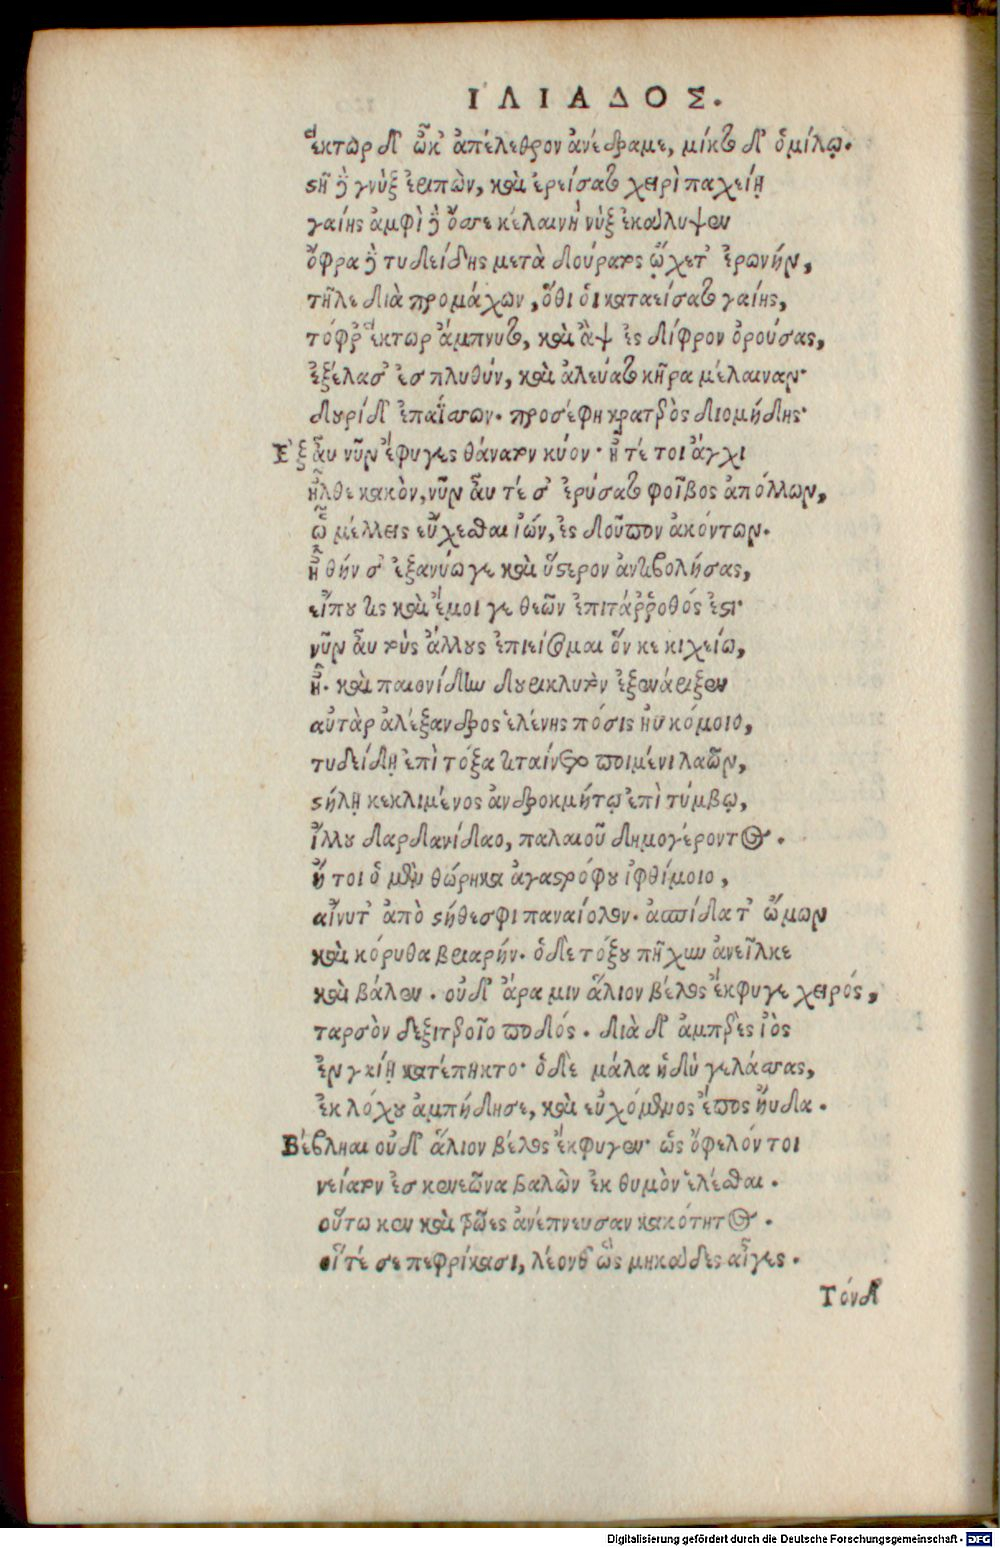 ΙΛΙΑΔΟΣ.
ἕκτωρ δ' ὦκ' ἀπέλεθρον ἀνέδραμε, μίκτο δ' ὁμίλῳ.
στῆ δὲ γνὺξ ἐριπὼν, καὶ ἐρείσατο χειρὶ παχείῃ
γαίης ἀμφὶ δὲ ὄσσε κέλαινὴ νὺξ ἐκάλυψεν
ὄφρα δὲ τυδείδης μετὰ δούρατος ᾤχετ' ἐρωὴν,
τῆλε διὰ προμάχων, ὅθι ὁι καταείσατο γαίης,
τόφρ' ἕκτωρ ἄμπνυτο, καὶ ἂψ ἐς δίφρον ὀρούσας,
ἐξέλασ' ἐς πληθύν, καὶ ἀλεύατο κῆρα μέλαιναν·
δουρὶ δ' ἐπαΐσσων. προσέφη κρατερὸς διομήδης·
Ἐξ ἆυ νῦν ἔφυγες θάνατον κύον· ἦ τέ τοι ἄγχι
ἦλθε κακὸν, νῦν ἆυ τέ σ' ἐρύσατο φοῖβος ἀπόλλων,
ᾧ μέλλεις εὔχεσθαι ἰών, ἐς δοῦπον ἀκόντων.
ἦ θήν σ' ἐξανύω γε καὶ ὕστερον ἀντιβολήσας,
εἴπου τις καὶ ἔμοι γε θεῶν ἐπιτάῤῥοθός ἐστι·
νῦν ἆυ τοὺς ἄλλους ἐπιείσομαι ὅν κε κιχείω,
ἦ. καὶ παιονίδην δουρικλυτὸν ἐξενάριξεν
αὐτὰρ ἀλέξανδρος ἑλένης πόσις ἠυκόμοιο,
τυδείδῃ ἐπὶ τόξα τιταίνετο ποιμένι λαῶν,
στήλῃ κεκλιμένος ἀνδροκμήτῳ ἐπὶ τύμβῳ,
ἴλλου δαρδανίδαο, παλαιοῦ δημογέροντος.
ἤ τοι ὁ μὲν θώρηκα ἀγαστρόφου ἰφθίμοιο,
αἴνυτ' ἀπὸ στήθεσφι παναίολον. ἀσπίδα τ' ὤμων
καὶ κόρυθα βριαρήν. ὁ δὲ τόξου πῆχυν ἀνεῖλκε
καὶ βάλεν. οὐδ' ἄρα μιν ἅλιον βέλος ἔκφυγε χειρός,
ταρσὸν δεξιτεροῖο ποδός. διὰ δ' ἀμπερὲς ἰὸς
ἐν γαίῃ κατέπηκτο· ὁ δὲ μάλα ἡδὺ γελάσσας,
ἐκ λόχου ἀμπήδησε, καὶ εὐχόμενος ἔπος ἤυδα.
Βέβληαι οὐδ' ἅλιον βέλος ἔκφυγεν· ὡς ὄφελόν τοι
νείατον ἐς κενεῶνα βαλὼν ἐκ θυμὸν ἑλέσθαι.
οὕτω κεν καὶ τρῶες ἀνέπνευσαν κακότητος.
οἵτέ σε πεφρίκασι, λέονθ' ὡς μηκάδες αἶγες.
Τόνδ'
Digitalisierung gefördert durch die Deutsche Forschungsgemeinschaft - DFG